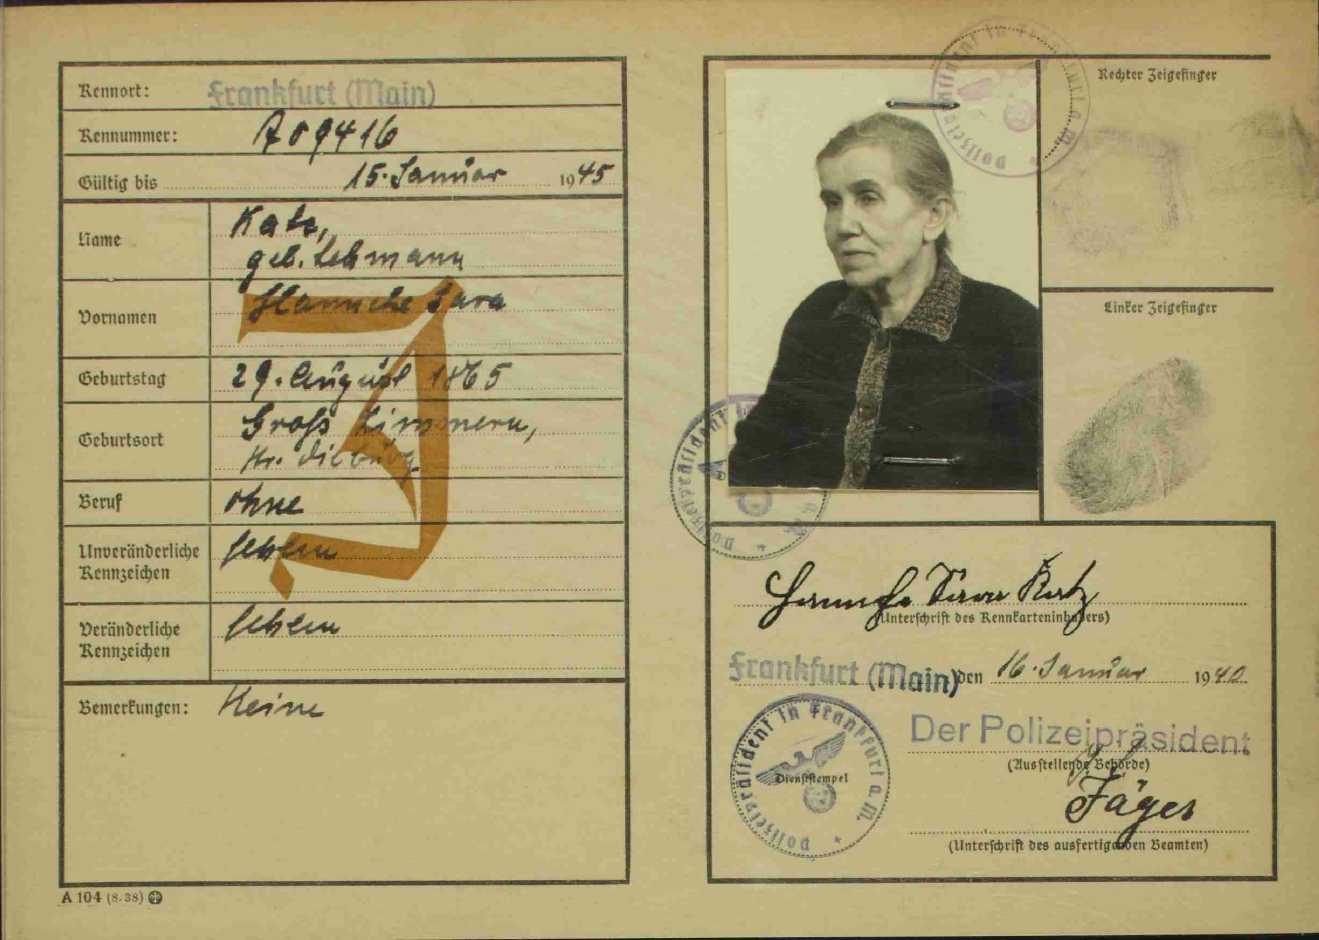 Kennort: Frankfurt (Main)
Kennummer: A 09416
Gültig bis 15. Januar 1945
Name Katz,
geb. Lehmann
Vornamen Hannche Sara
J
Geburtstag 29. August 1865
Geburtsort Groß Zimmern,
Kr. Dieburg
Beruf ohne
Unveränderliche fehlen
Kennzeichen
Veränderliche fehlen
Kennzeichen
Bemerkungen: Keine
A 104 (8. 38)
Polizeipräsident in Frankfurt a. M.
Rechter Zeigefinger
Linker Zeigefinger
Polizeipräsident in
a. M.
Hannche Sara Katz
(Unterschrift des Kennkarteninhabers)
Frankfurt (Main) den 16. Januar 1940
Der Polizeipräsident
(Ausstellende Behörde)
Polizeipräsident in Frankfurt a. M.
Dienststempel
Jäger
(Unterschrift des ausfertigenden Beamten)